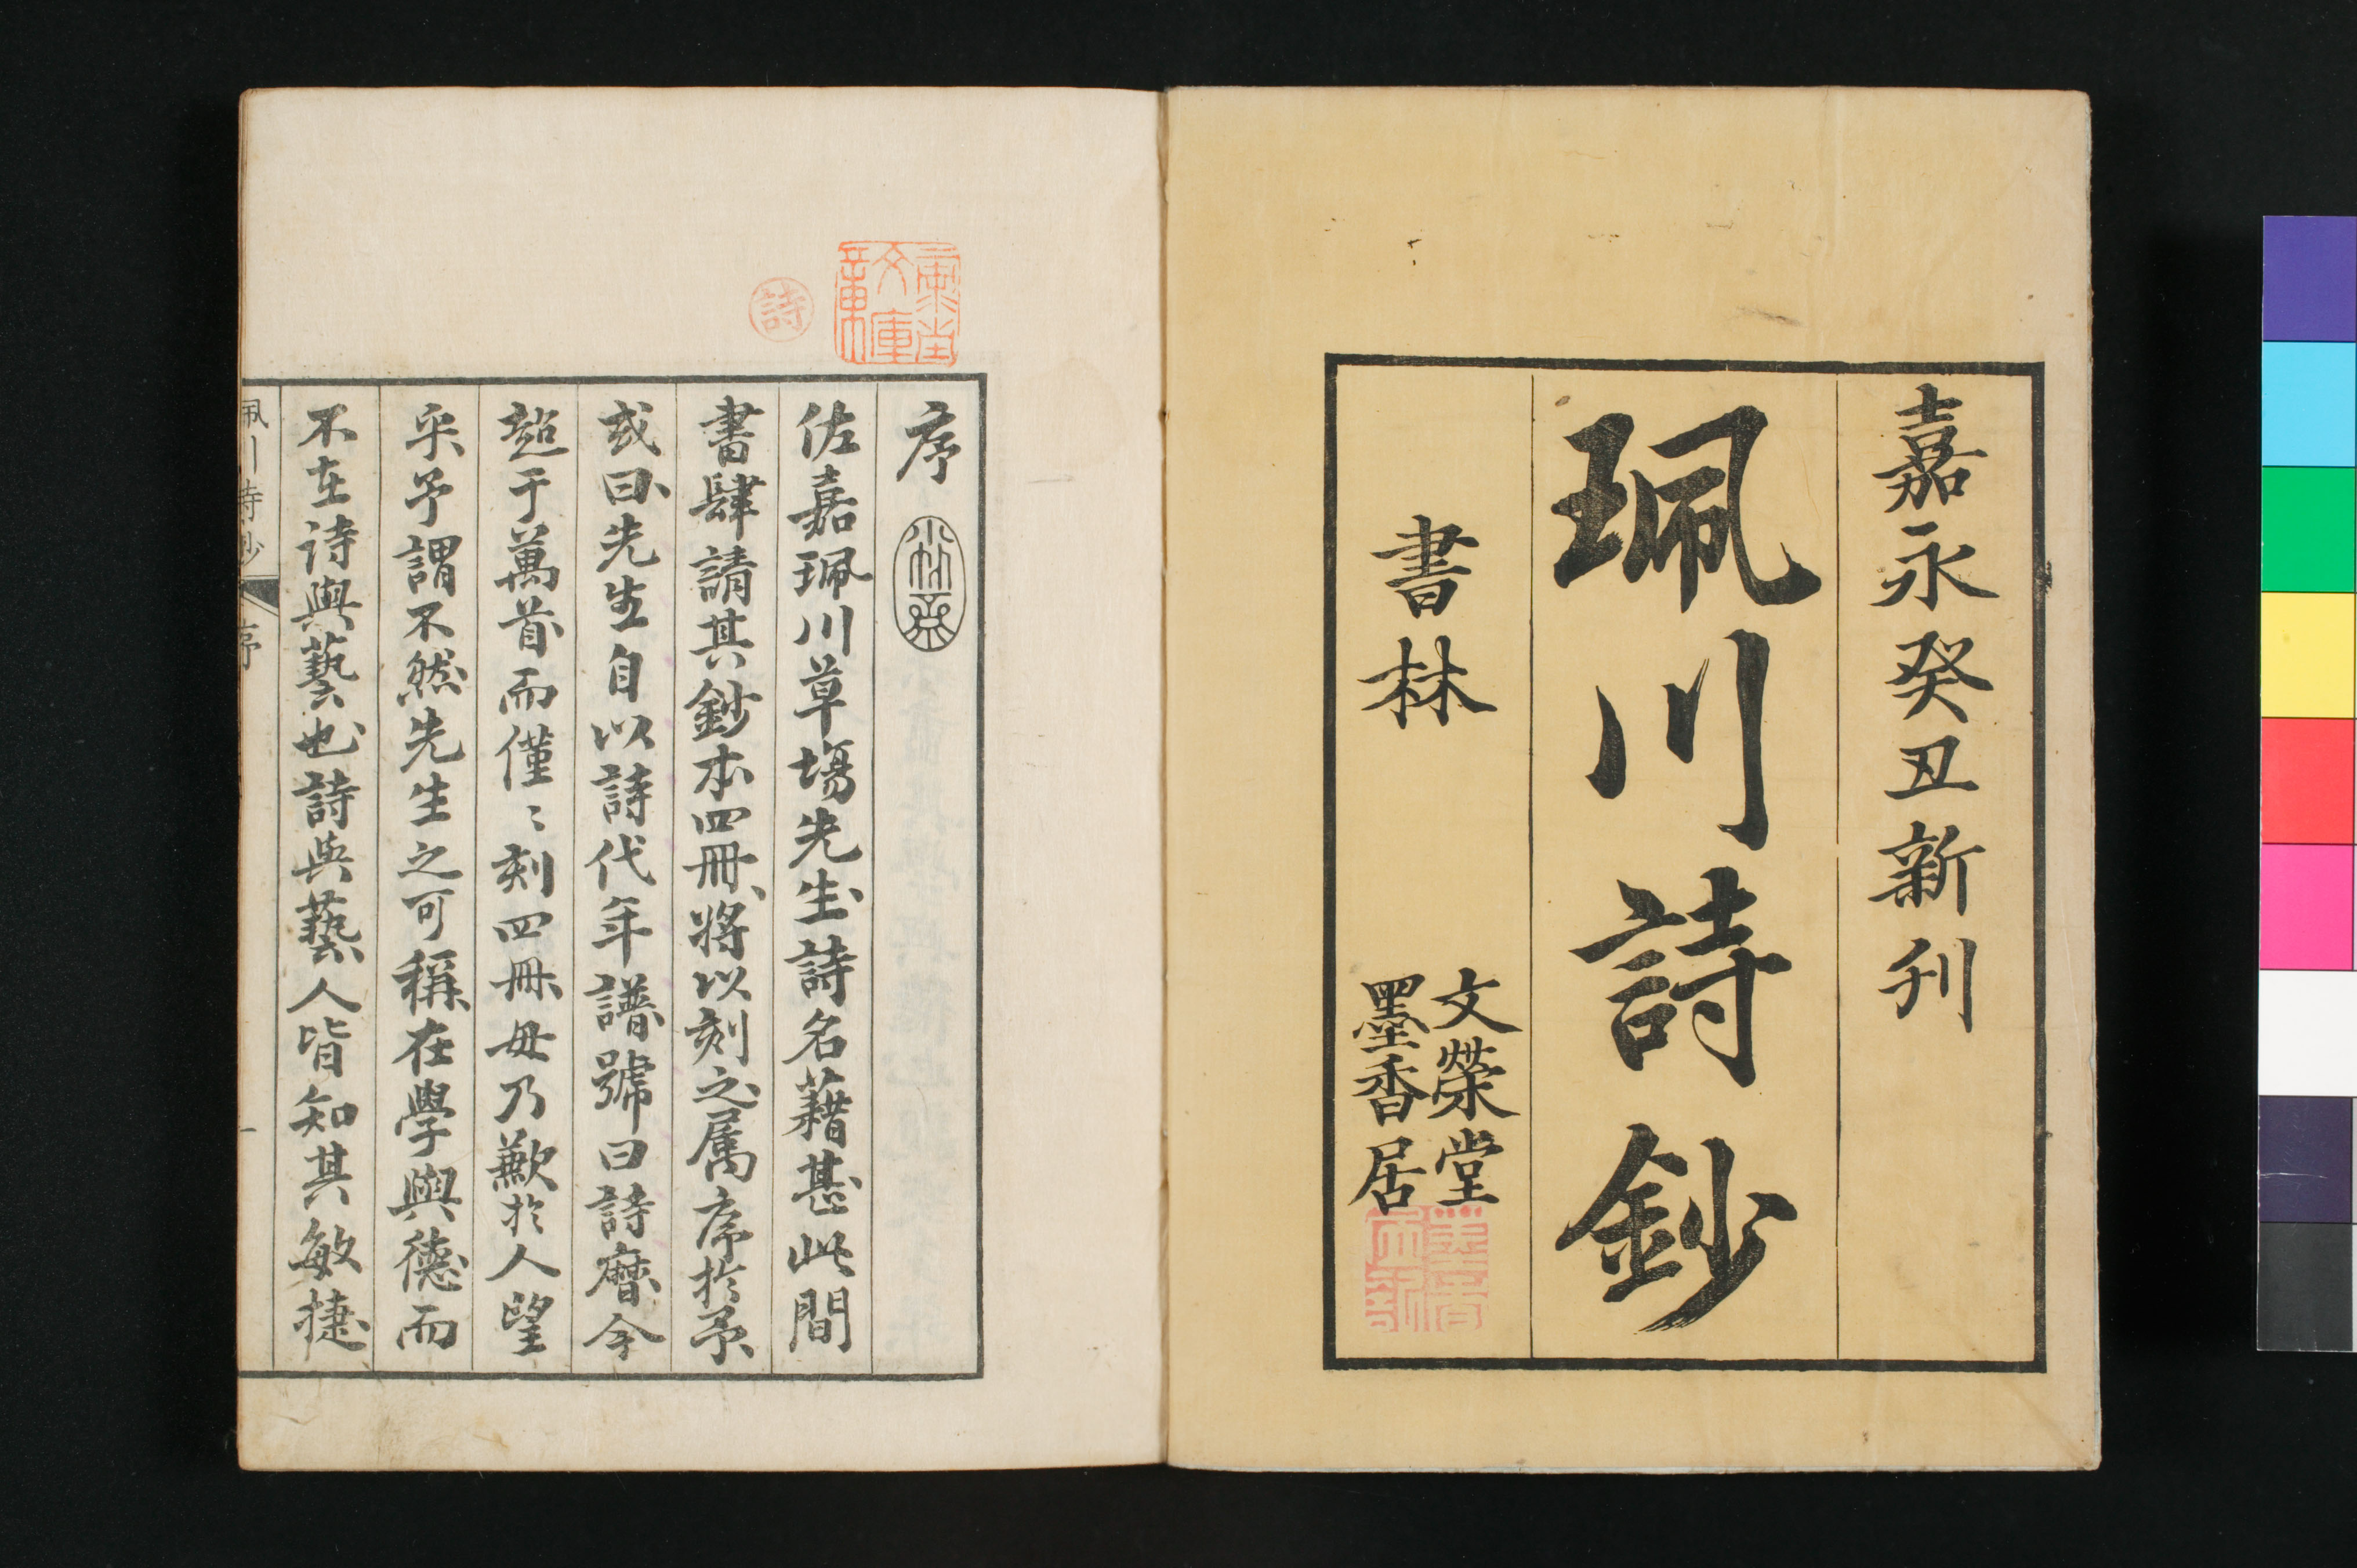 嘉永癸丑新刊
珮川詩鈔
書林
文榮堂
墨香居
詩
序
佐嘉珮川草場先生詩名藉甚此間
書肆請其鈔本四冊將以刻之属序於予
或曰先生自以詩代年譜號曰詩曆今
超于萬首而僅〻刻四冊毋乃歉於人望
乎予謂不然先生之可稱在學與德而
不在詩與藝也詩與藝人皆知其敏捷
珮川詩鈔
序
一